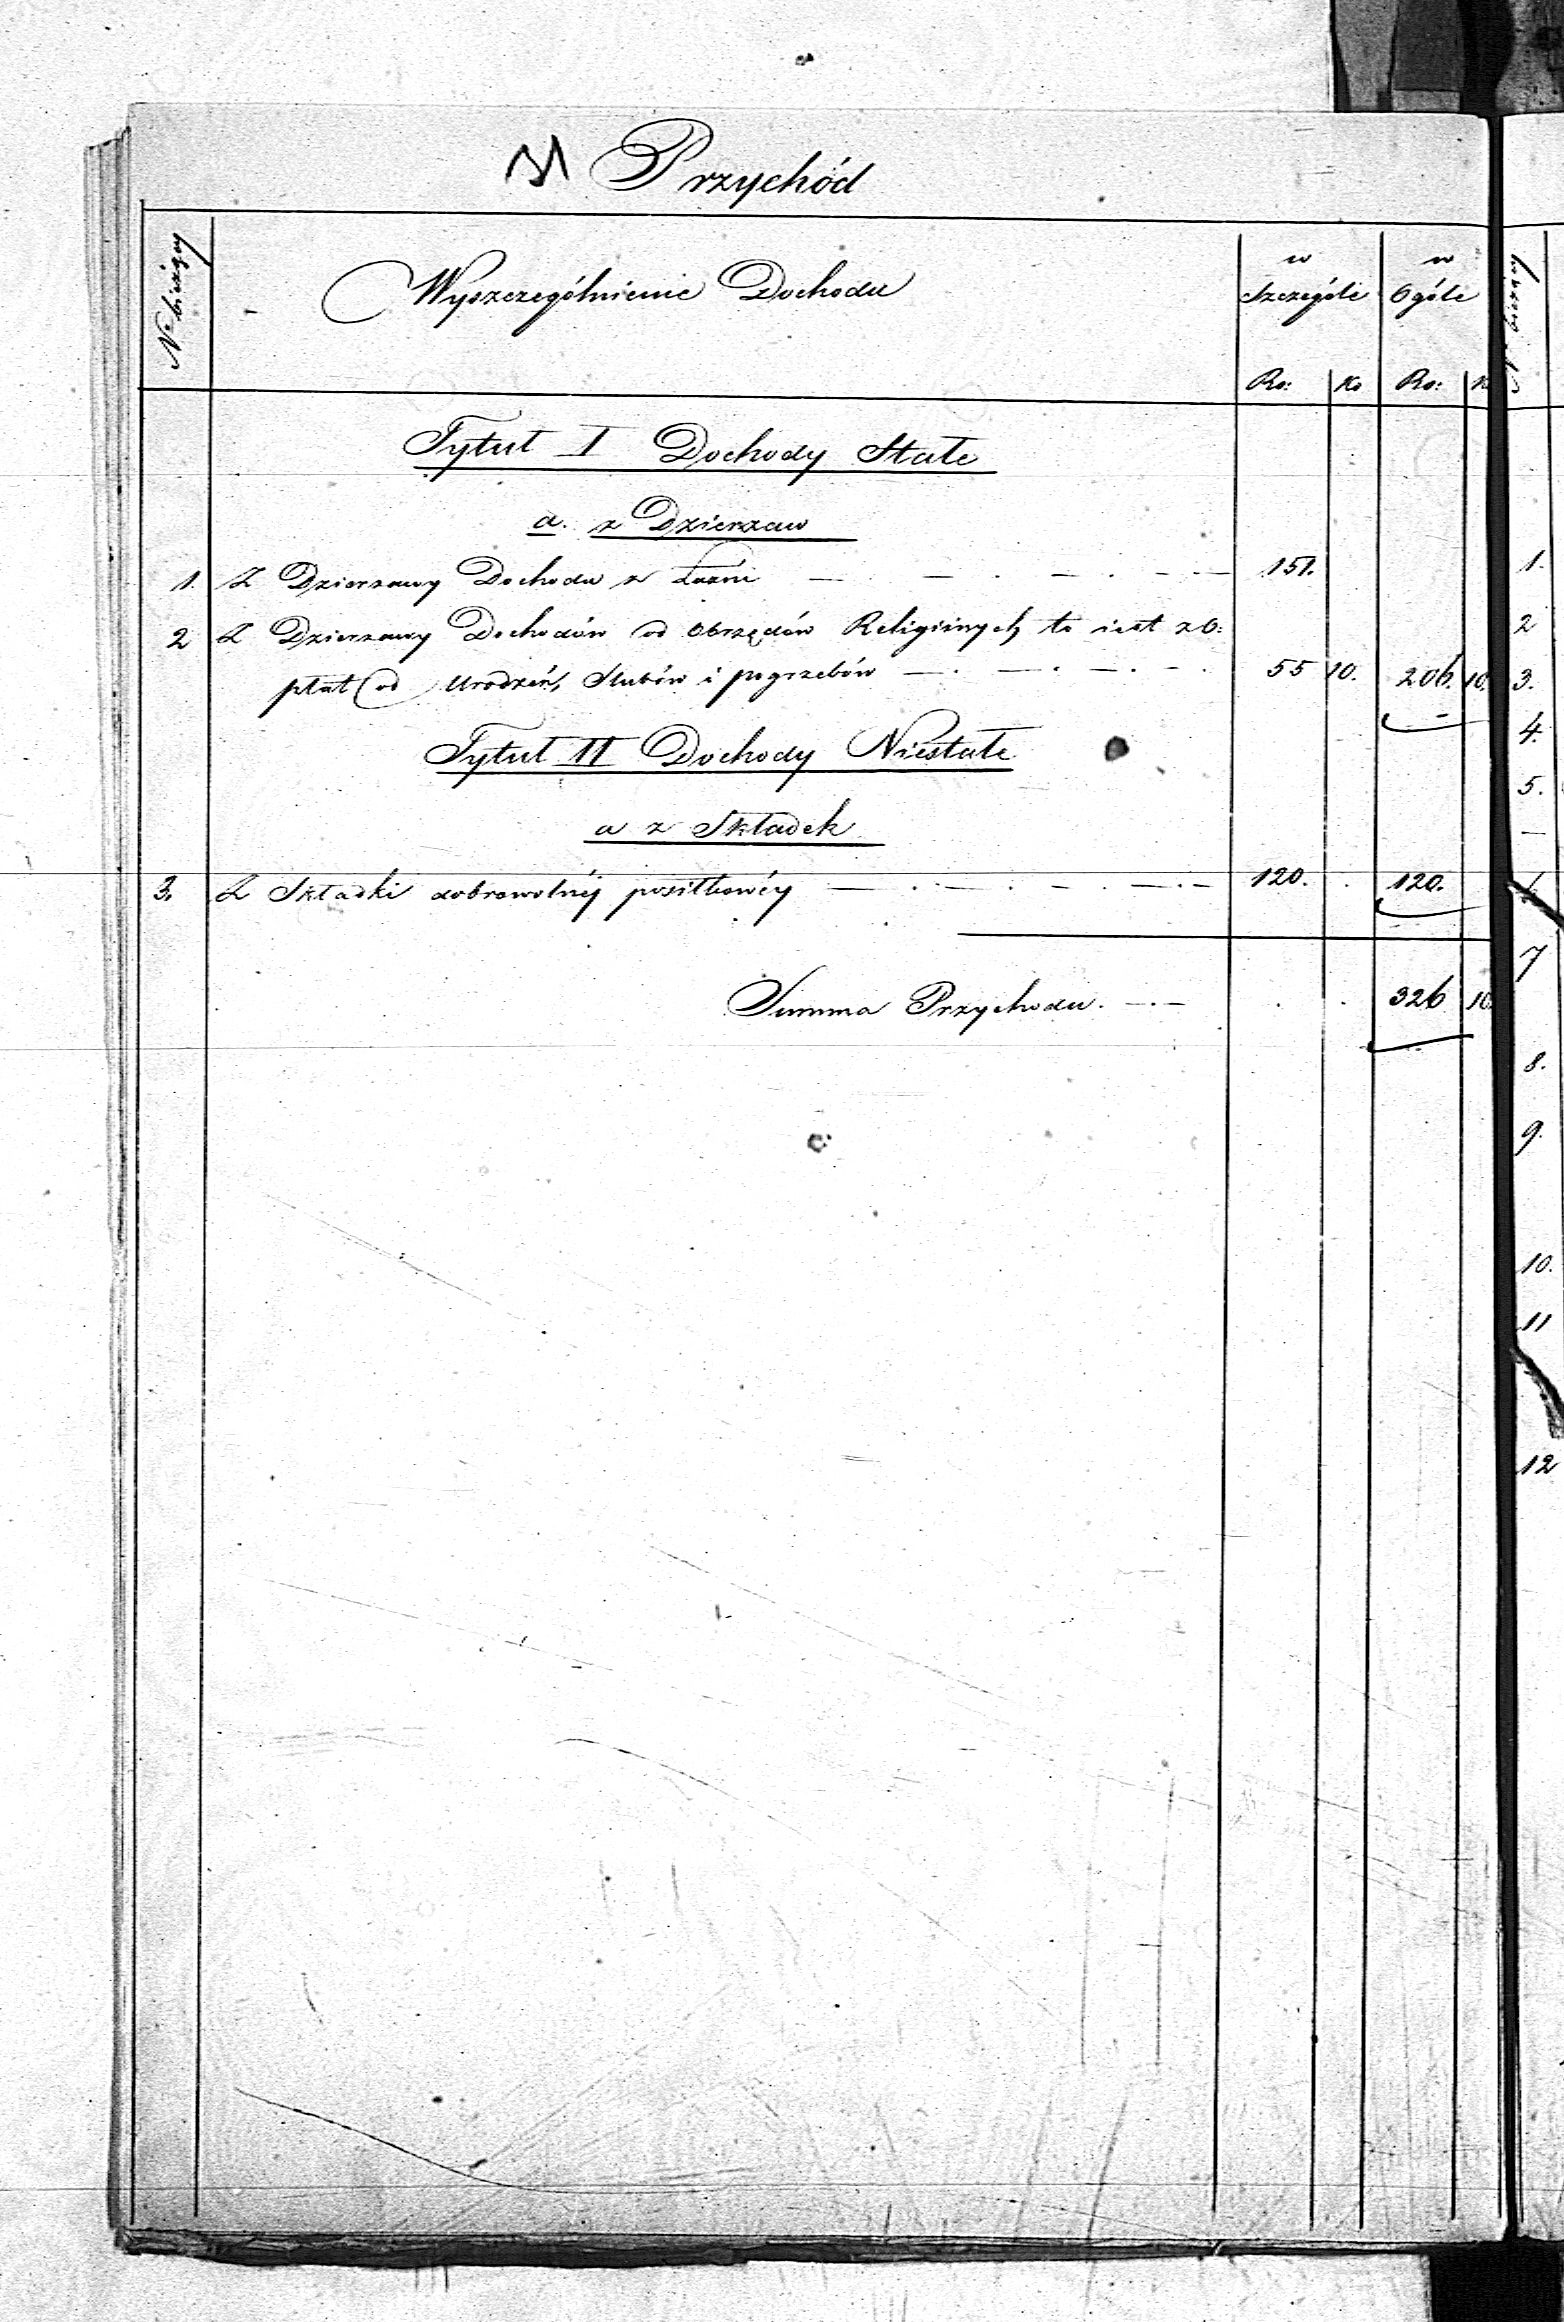 Przychód
N bieżący
Wyszczególnienie Dochodu
w Szczególe
w Ogóle
Rs: Ko Rs: K
Tytuł I Dochody Stałe
a. z Dzierzaw
1. Z Dzierzawy Dochodu z Łaźni 151.
2 Z Dzierzawy Dochodów od Obrzędów Religiinych to iest z O:
płat od Urodzeń, Slubów i pogrzebów 55 10. 206. 10.
Tytuł II Dochody Niestałe
a z Składek
3. Z Składki dobrowolnéj posiłkowéy 120. 120.
Summa Przychodu. 326 10.
1.
2
3.
4.
5.
7
8.
9.
10.
11
12